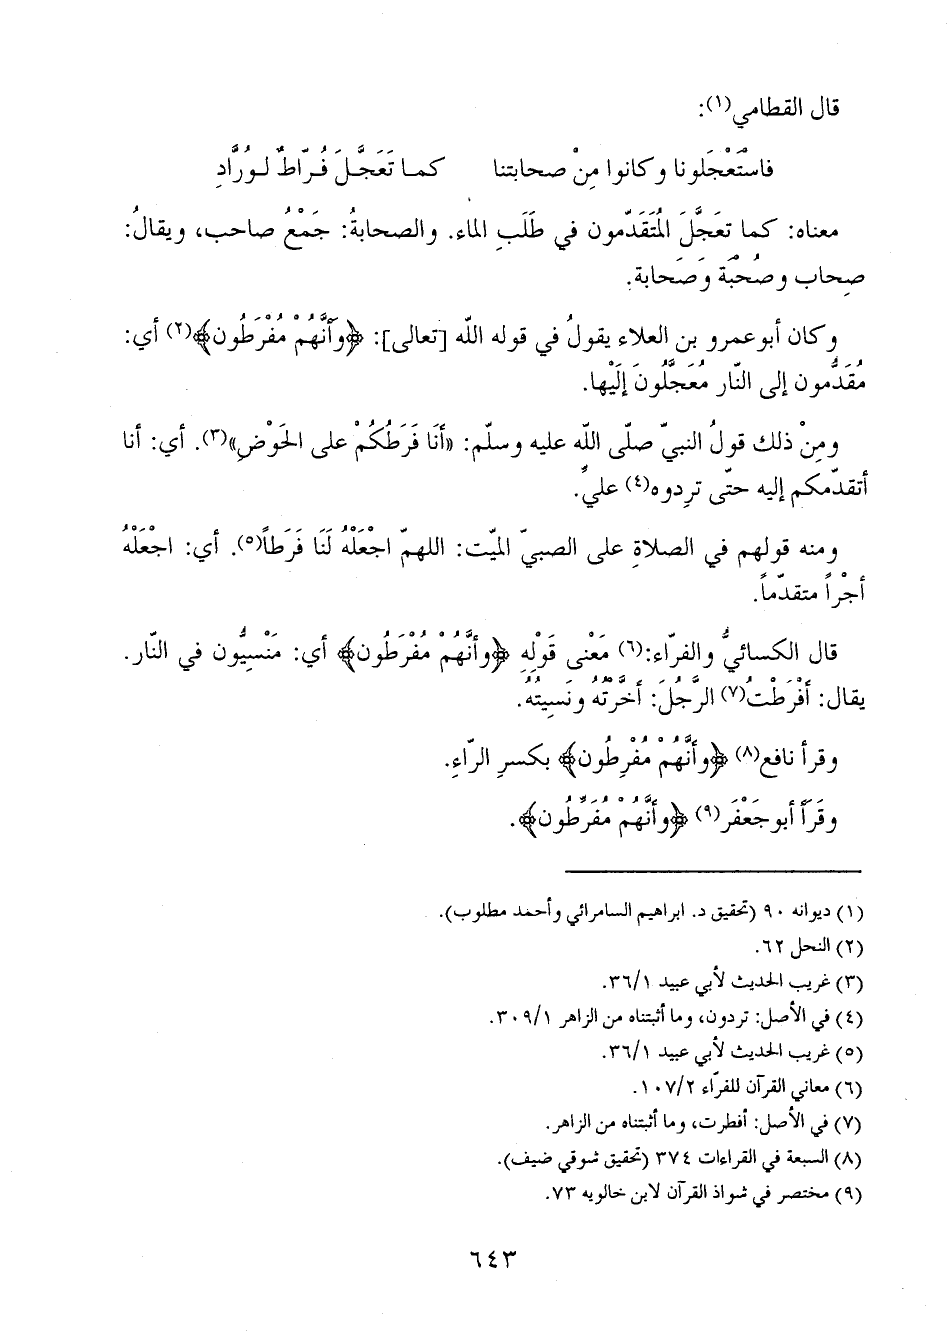 قال القطامي(١):
فاسْتَعْجَلونا وكانوا مِنْ صحابتنا كما تَعَجَّلَ فُرّاطٌ لوُرَّادِ
معناه: كما تعَجَّلَ المُتَقَدّمون في طَلَبِ الماء. والصحابةُ: جَمْعُ صاحب، ويقالُ:
صِحاب وصُحْبَة وصَحابة.
وكان أبو عمرو بن العلاء يقولُ في قوله الله [تعالى]: ﴿وأَنَّهُمْ مُفْرَطُون﴾(٢) أي:
مُقَدَّمون إلى النّار مُعَجَّلُونَ إلَيْها.
ومِنْ ذلك قولُ النبيّ صلّى الله عليه وسلّم: «أَنَا فَرَطُكُمْ على الحَوْضِ»(٣). أي: أنا
أتقدّمكم إليه حتّى ترِدوه(٤) عليَّ.
ومنه قولهم في الصلاةِ على الصبيّ الميّت: اللهمّ اجْعَلْهُ لَنَا فَرَطاً(٥). أي: اجْعَلْهُ
أجْراً متقدّماً.
قال الكسائيُّ والفرّاء:(٦) مَعْنى قَوْلِهِ ﴿وأنَّهُمْ مُفْرَطُون﴾ أي: مَنْسِيُّون في النّار.
يقال: أفْرَطْتُ(٧) الرَّجُلَ: أخَّرْتُهُ ونَسِيتُهُ.
وقرأ نافع(٨) ﴿وأنَّهُمْ مُفْرِطُون﴾ بكسرِ الرّاءِ.
وقَرَأَ أبو جَعْفَر(٩) ﴿وأنَّهُمْ مُفَرِّطُون﴾.
(١) ديوانه ٩٠ (تحقيق د. ابراهيم السامرائي وأحمد مطلوب).
(٢) النحل ٦٢.
(٣) غريب الحديث لأبي عبيد ٣٦/١.
(٤) في الأصل: تردون، وما أثبتناه من الزاهر ٣٠٩/١.
(٥) غريب الحديث لأبي عبيد ٣٦/١.
(٦) معاني القرآن للفرّاء ١٠٧/٢.
(٧) في الأصل: أفطرت، وما أثبتناه من الزاهر.
(٨) السبعة في القراءات ٣٧٤ (تحقيق شوقي ضيف).
(٩) مختصر في شواذ القرآن لابن خالويه ٧٣.
٦٤٣